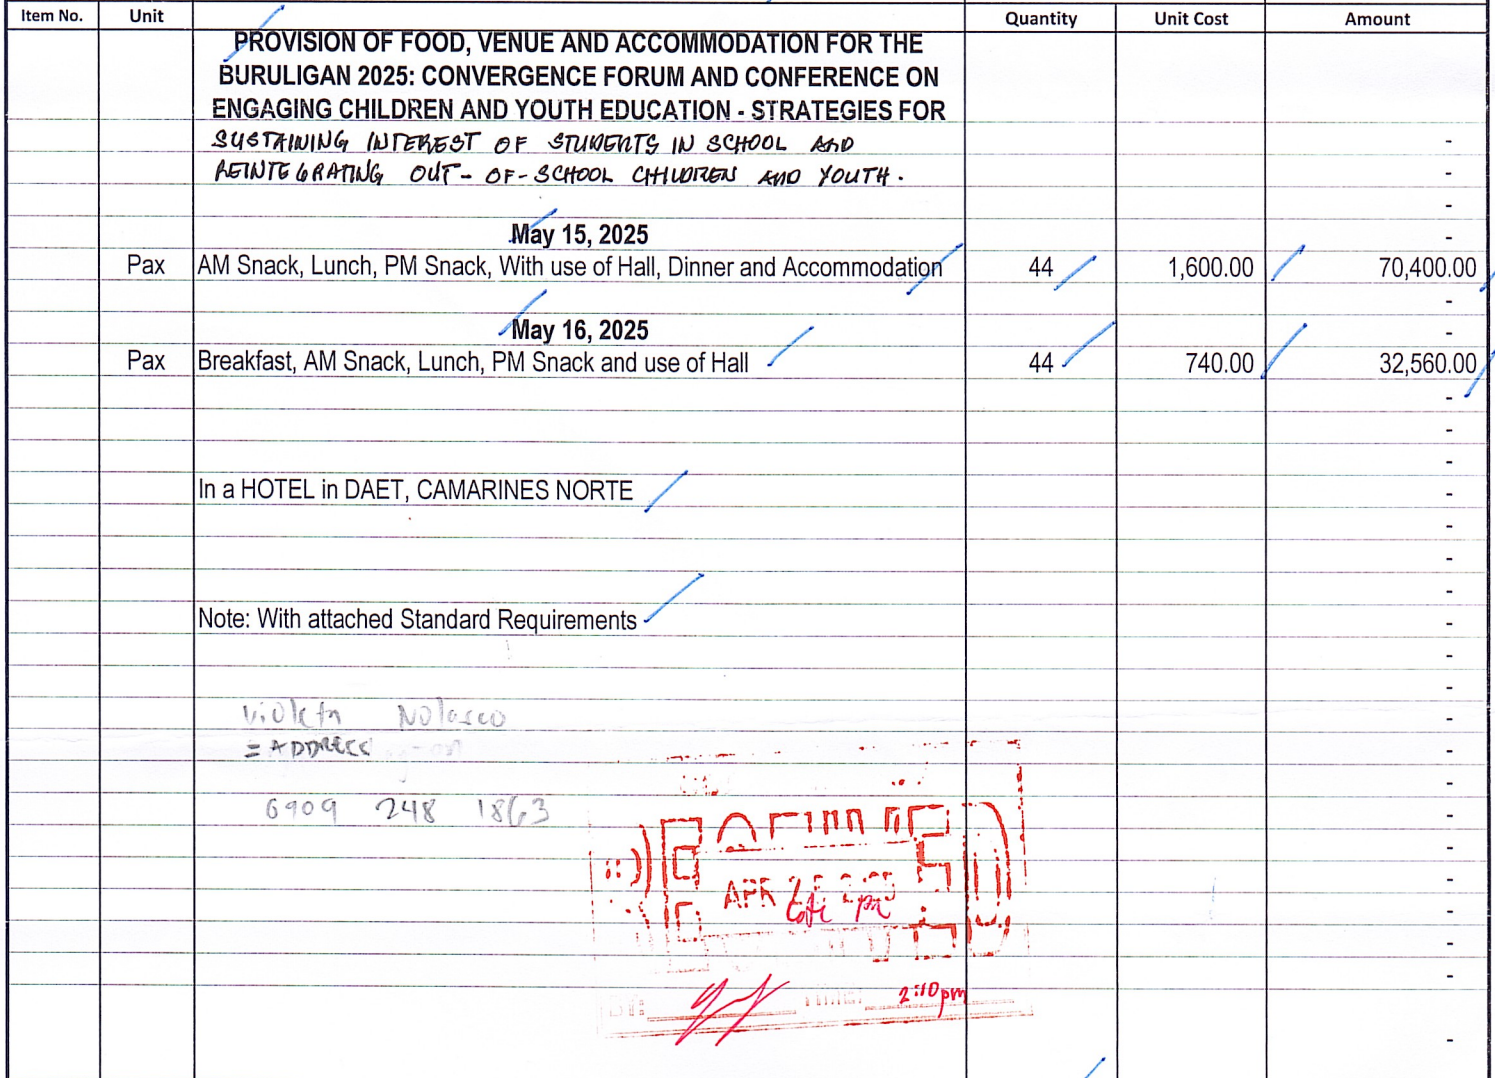 Item No. Unit Quantity Unit Cost Amount
PROVISION OF FOOD, VENUE AND ACCOMMODATION FOR THE
BURULIGAN 2025: CONVERGENCE FORUM AND CONFERENCE ON
ENGAGING CHILDREN AND YOUTH EDUCATION - STRATEGIES FOR
SUSTAINING INTEREST OF STUDENTS IN SCHOOL AND -
REINTEGRATING OUT-OF-SCHOOL CHILDREN AND YOUTH. -
-
May 15, 2025 -
Pax AM Snack, Lunch, PM Snack, With use of Hall, Dinner and Accommodation 44 1,600.00 70,400.00
-
May 16, 2025 -
Pax Breakfast, AM Snack, Lunch, PM Snack and use of Hall 44 740.00 32,560.00
-
-
-
In a HOTEL in DAET, CAMARINES NORTE -
-
-
-
Note: With attached Standard Requirements -
-
-
Violeta Nolasco -
= ADDRESS -
-
6909 248 1863 -
-
-
APR -
-
-
2:10pm
-